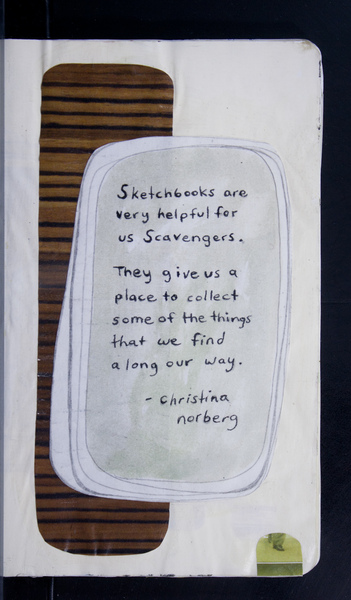 Sketchbooks are
very helpful for
us Scavengers.
They give us a
place to collect
some of the things
that we find
along our way.
- Christina
norberg